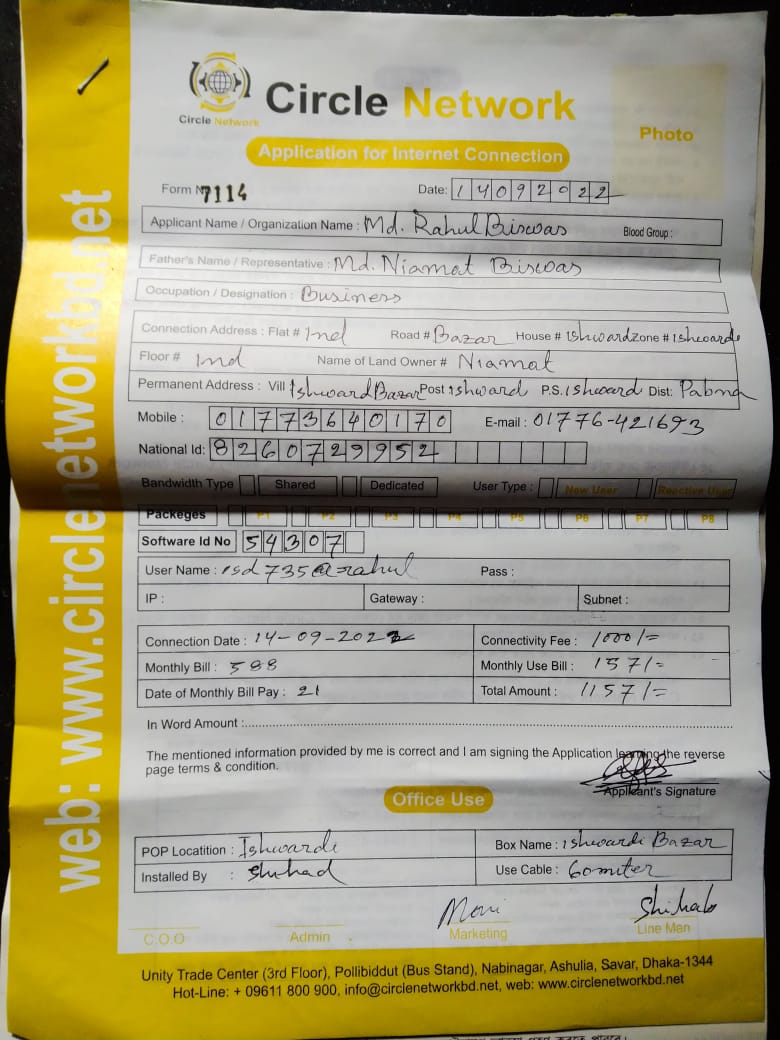 Circle Network
Circle Network
Photo
Application for Internet Connection
Form N 7114 Date: 14092022
Applicant Name / Organization Name : Md. Rahul Biswas Blood Group :
Father's Name / Representative : Md. Niamat Biswas
Occupation / Designation : Business
Connection Address : Flat # Ind Road # Bazar House # Ishward Zone # Ishwardi
Floor # Ind Name of Land Owner # Niamat
Permanent Address : Vill Ishward Bazar Post Ishward P.S. Ishward Dist: Pabna
Mobile : 01773640170 E-mail : 01776-421693
National Id: 8260729952
Bandwidth Type Shared Dedicated User Type : New User Reactive User
Packeges P1 P2 P3 P4 P5 P6 P7 P8
Software Id No 54307
User Name : isd735@rahul Pass :
IP : Gateway : Subnet :
Connection Date : 14-09-2022 Connectivity Fee : 1000/=
Monthly Bill : 588 Monthly Use Bill : 157/=
Date of Monthly Bill Pay : 21 Total Amount : 1157/=
In Word Amount :
The mentioned information provided by me is correct and I am signing the Application learning the reverse
page terms & condition.
Applicant's Signature
Office Use
POP Locatition : Ishwardi Box Name : Ishwardi Bazar
Installed By : Shihad Use Cable : 60 miter
Moni Shihab
C.O.O Admin Marketing Line Man
Unity Trade Center (3rd Floor), Pollibiddut (Bus Stand), Nabinagar, Ashulia, Savar, Dhaka-1344
Hot-Line: + 09611 800 900, info@circlenetworkbd.net, web: www.circlenetworkbd.net
web: www.circlenetworkbd.net